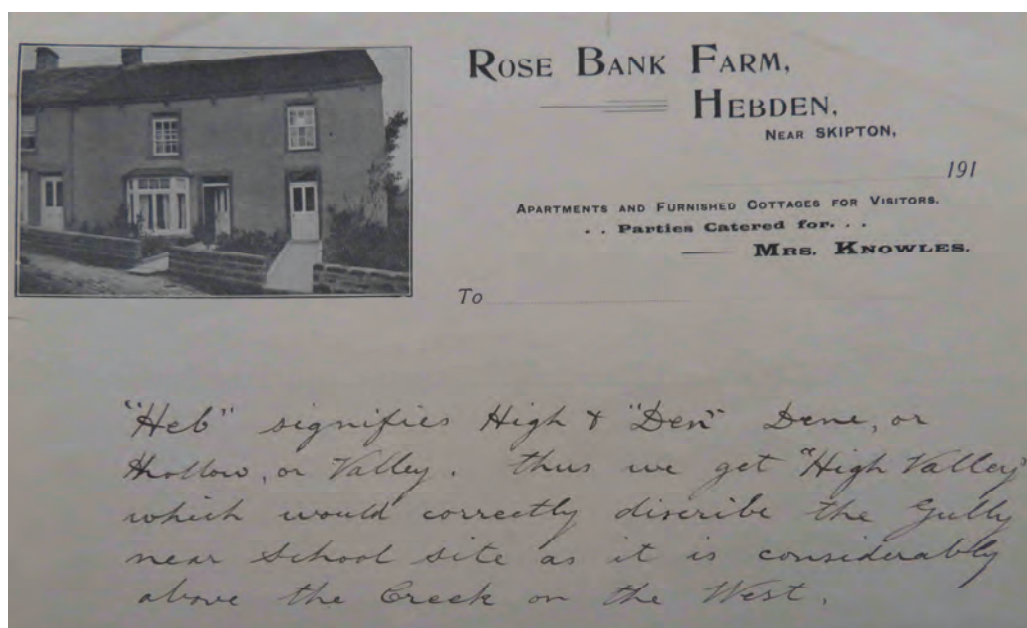 ROSE BANK FARM,
HEBDEN,
NEAR SKIPTON,
191
APARTMENTS AND FURNISHED COTTAGES FOR VISITORS.
. . Parties Catered for. . .
MRS. KNOWLES.
To
"Heb" signifies High & "Den" Dene, or
Hollow, or Valley. Thus we get "High Valley"
which would correctly discribe the Gully
near School site as it is considerably
above the Creek on the West.